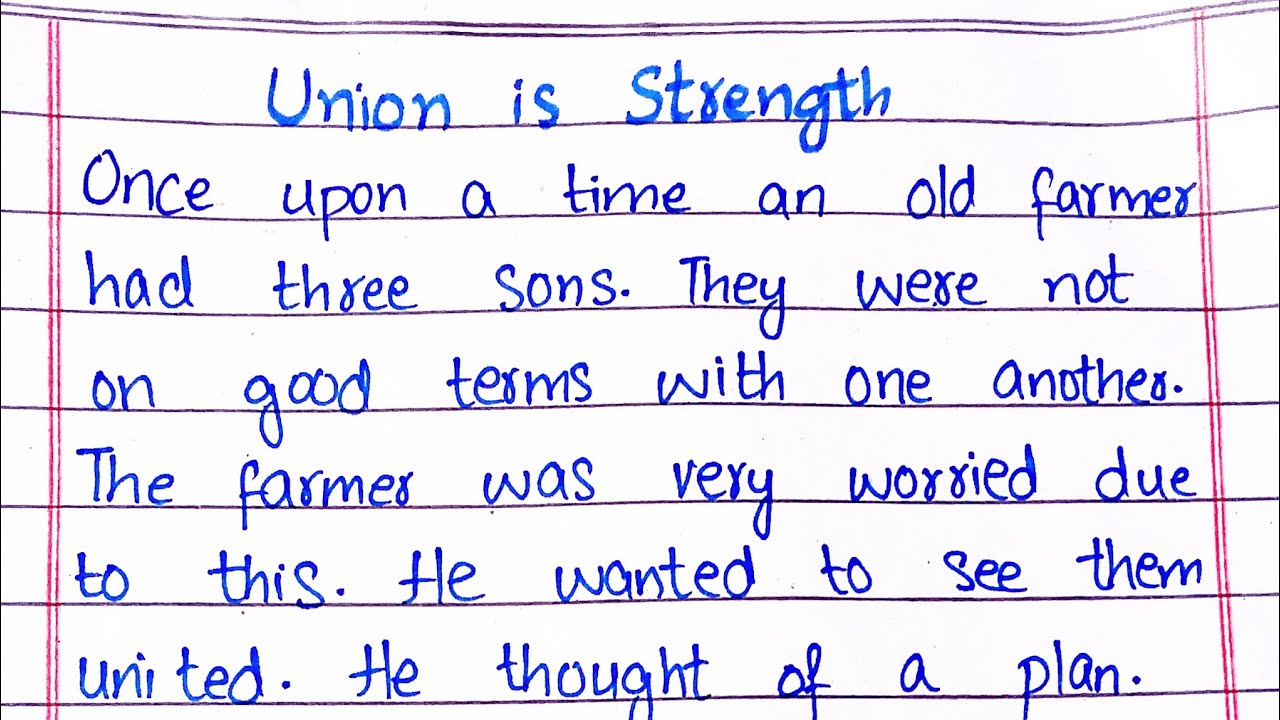 Union is Strength
Once upon a time an old farmer
had three sons. They were not
on good terms with one another.
The farmer was very worried due
to this. He wanted to see them
united. He thought of a plan.